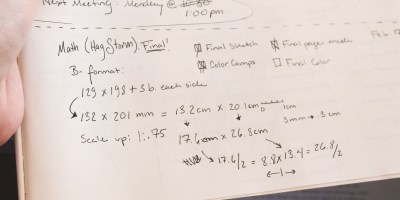 Next Meeting: Monday @ 10:30
1:00pm
Math (Hag Storm) Final!
Final Sketch
Final pages made
Feb 12
Color Comps
Final Color
B- format:
129 x 198 + 3 b. each side
132 x 201 mm = 13.2cm x 20.1cm
1cm
3mm → .3cm
Scale up: 1:.75
17.6cm x 26.8cm
17.6/2 = 8.8 x 13.4 = 26.8/2